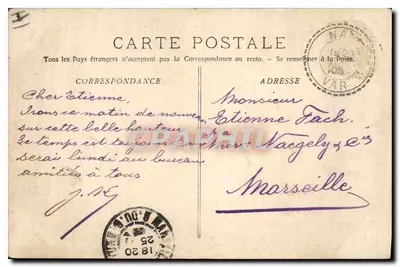 CARTE POSTALE
Tous les Pays étrangers n'acceptent pas la Correspondance au recto. — Se renseigner à la Poste.
CORRESPONDANCE
ADRESSE
Cher Etienne,
ce matin de
sur cette belle hauteur
temps est toujours
serai lundi au bureau
amitiés à tous
Monsieur
Etienne Fach.
Naegely & Cie
Marseille
VAR
18 20
25